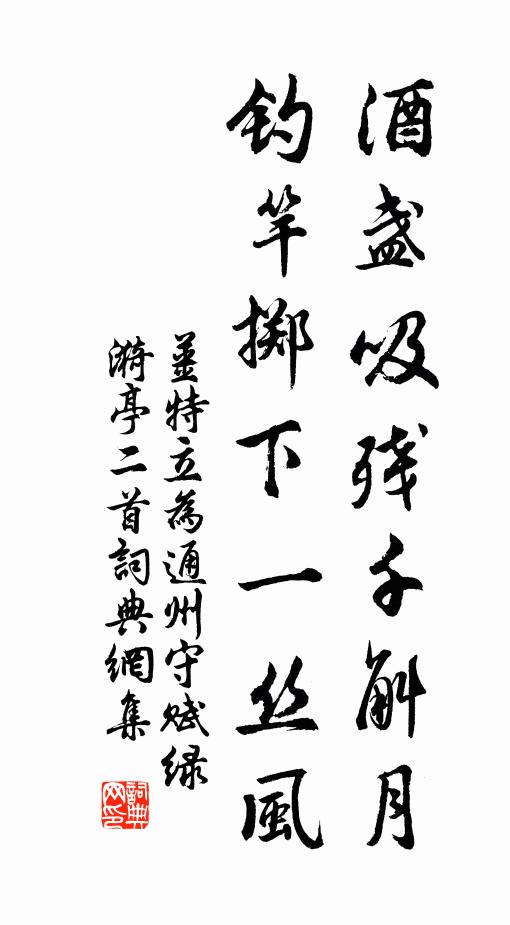 酒盏吸残千斛月
钓竿掷下一丝风
姜特立為通州守赋绿
漪亭二首詞典網集
詞典
网印